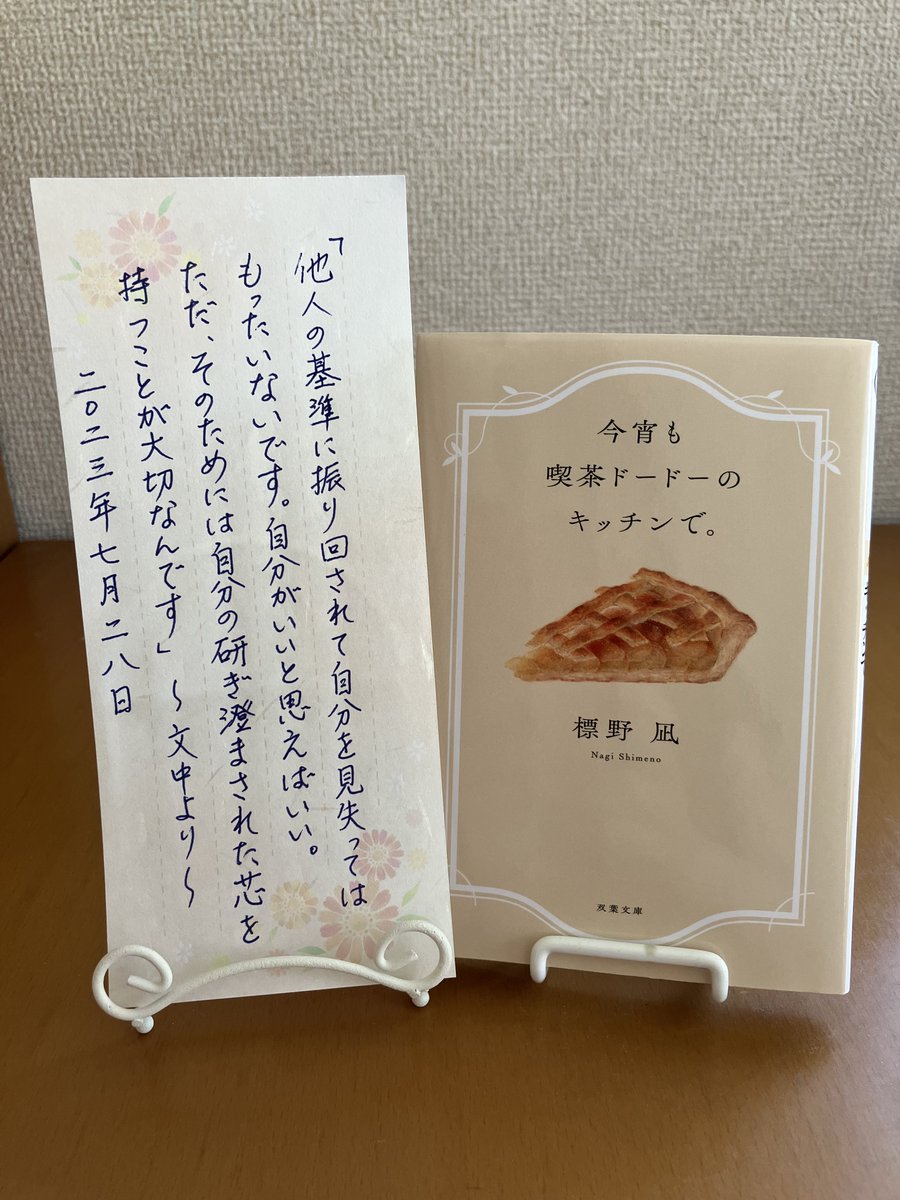 「他人の基準に振り回されて自分を見失っては
もったいないです。自分がいいと思えばいい。
ただ、そのためには自分の研ぎ澄まされた芯を
持つことが大切なんです」〜文中より〜
二〇二三年七月二八日
今宵も
喫茶ドードーの
キッチンで。
標野 凪
Nagi Shimeno
双葉文庫